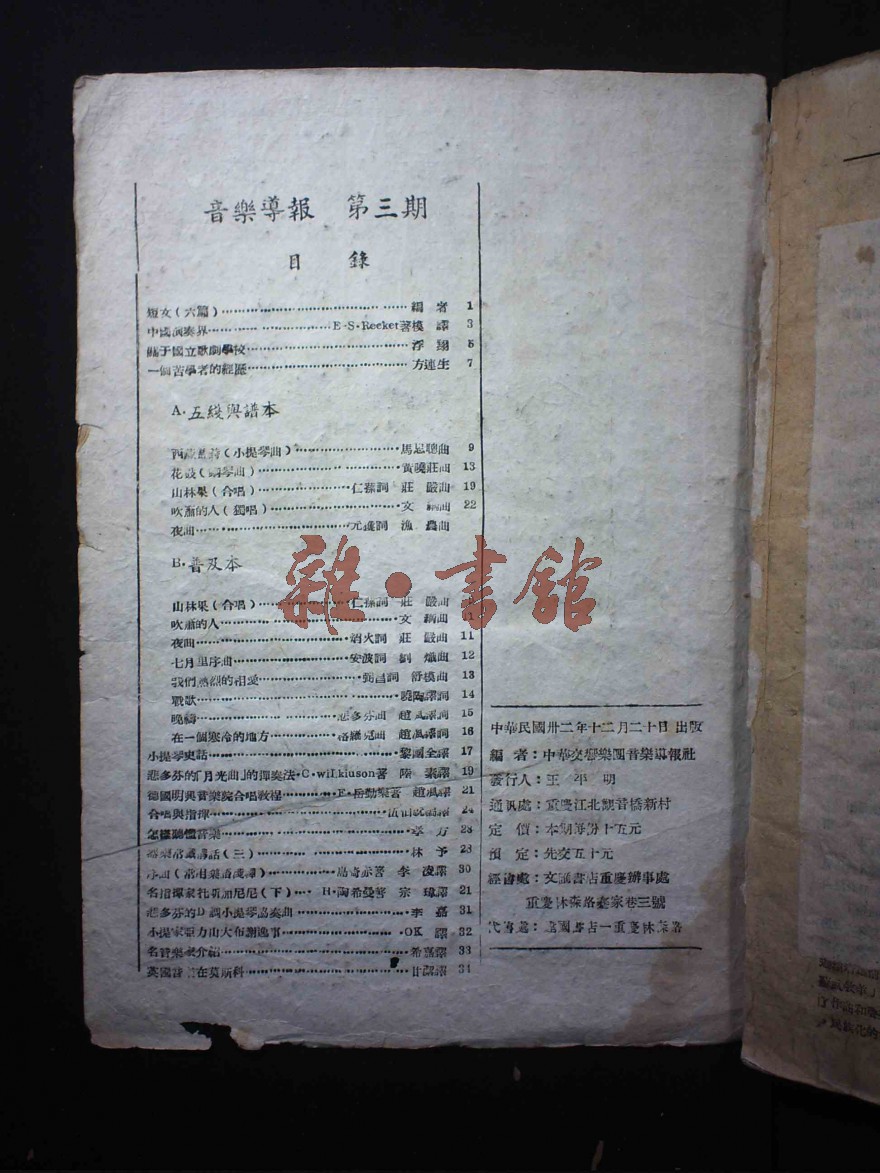 音樂導報 第三期
目 錄
短文(六篇) 編者 1
中國演奏界 E·S·Recket著 模譯 3
關于國立歌劇學校 浮翔 5
一個苦學者的經歷 方連生 7
A·五綫與譜本
西藏 詩(小提琴曲) 馬思聰曲 9
花鼓(鋼琴曲) 黃曉莊曲 13
山林果(合唱) 仁蓀詞 莊嚴曲 19
吹蕭的人(獨唱) 文 曲 22
夜曲 詞 漁農曲
B·普及本
山林果(合唱) 仁蓀詞 莊嚴曲
吹蕭的人 文 曲
夜曲 詞 莊嚴曲 11
七月里序曲 安波詞 劉熾曲 12
我們熱烈的相愛 詞 舒模曲 13
戰歌 曉陶譯詞 14
晚禱 悲多芬曲 趙渢譯詞 15
在一個寒冷的地方 格羅克曲 趙渢譯詞 16
小提琴史話 黎國全譯 17
悲多芬的「月光曲」的彈奏法·C·wilkiuson著 陸素譯 19
德國明興音樂院合唱教程 F·岳勒樂著 趙渢譯 21
合唱與指揮 譯 24
怎樣聽懂音樂 李方 28
音樂常識講話(三) 林予 28
序曲 著 李凌譯 30
名指揮家托斯加尼尼(下) H·陶希曼著 宗瑋譯 21
悲多芬的D調小提琴協奏曲 李嘉 31
小提家亞力山大布 逸事 OK譯 32
名音樂家介紹 希嘉譯 33
英國音 在莫斯科 甘 譯 34
中華民國卅二年十二月二十日出版
編者:中華交響樂團音樂導報社
發行人:王 明
通訊處:重慶江北觀音橋新村
定價:本期每份十五元
預定:先交五十元
經售處:文 書店重慶辦事處
重慶林森路 家巷三號
代售處: 國書店一重慶林森路
雜·書館